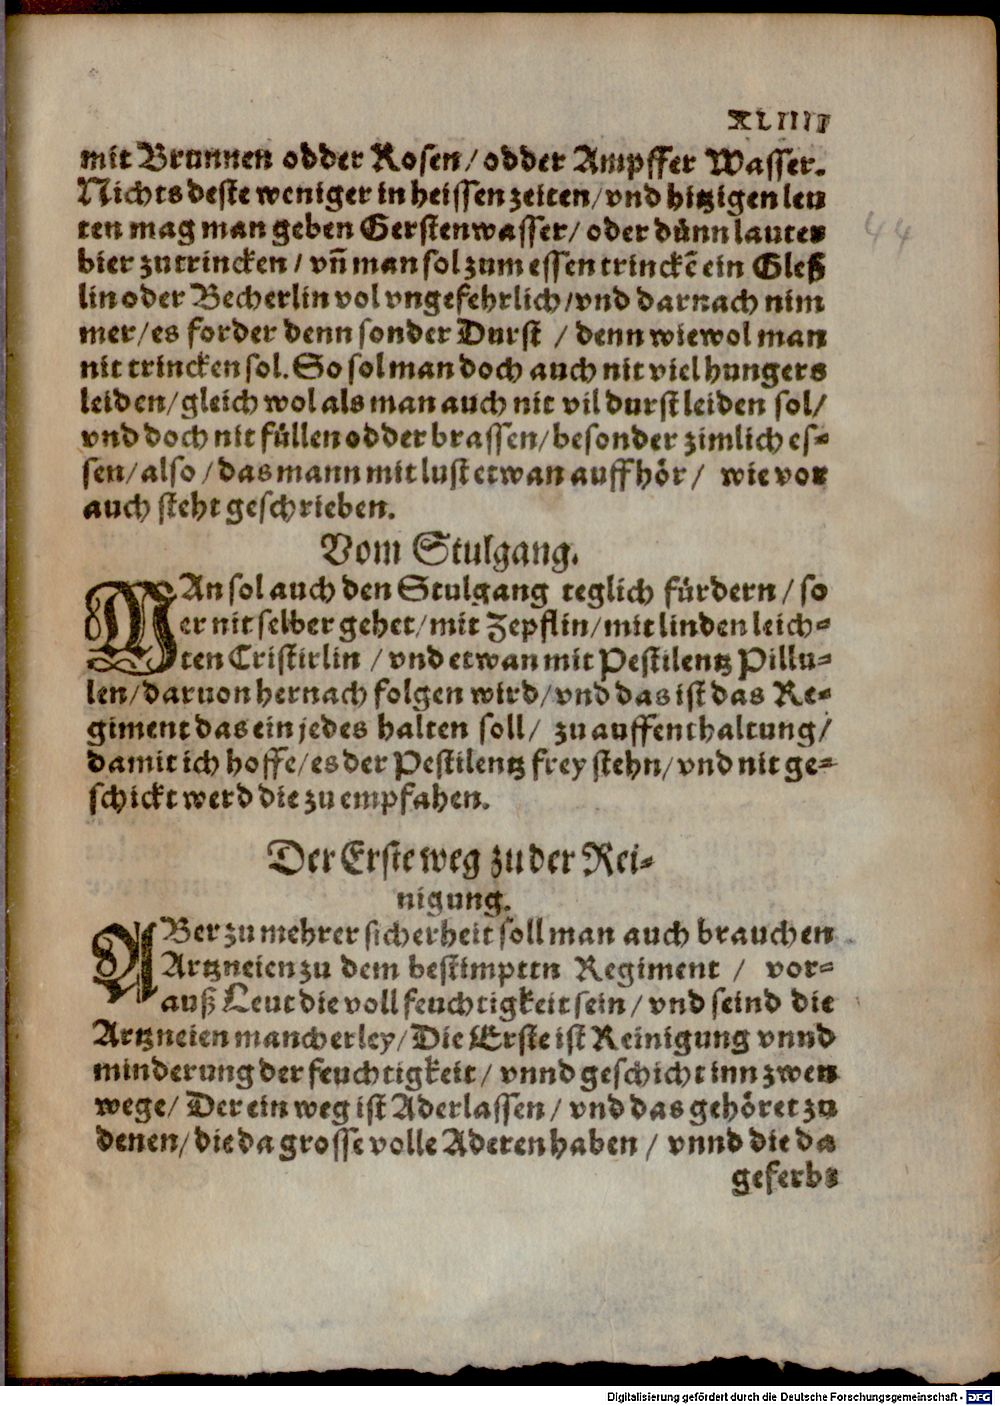 XLIIII
mit Brunnen odder Rosen/ odder Ampffer Wasser.
Nichts deste weniger in heissen zeiten/ vnd hitzigen leu
ten mag man geben Gerstenwasser/ oder dünn lauter
bier zu trincken/ vñ man sol zum essen trinckē ein Gleß
lin oder Becherlin vol vngefehrlich/ vnd darnach nim
mer/ es forder denn sonder Durst / denn wiewol man
nit trincken sol. So sol man doch auch nit viel hungers
leiden/ gleich wol als man auch nit vil durst leiden sol/
vnd doch nit füllen odder brassen/ besonder zimlich es-
sen/ also / das mann mit lust etwan auffhör/ wie vor
auch steht geschrieben.
Vom Stulgang.
MAn sol auch den Stulgang teglich fürdern/ so
er nit selber gehet/ mit Zepflin/ mit linden leich-
ten Cristirlin / vnd etwan mit Pestilentz Pillu-
len/ daruon hernach folgen wird/ vnd das ist das Re-
giment das ein jedes halten soll/ zu auffenthaltung/
damit ich hoffe/ es der Pestilentz frey stehn/ vnd nit ge-
schickt werd die zu empfahen.
Der Erste weg zu der Rei-
nigung.
ABer zu mehrer sicherheit soll man auch brauchen
Artzneien zu dem bestimpttn Regiment / vor-
auß Leut die voll feuchtigkeit sein/ vnd seind die
Artzneien mancherley/ Die Erste ist Reinigung vnnd
minderung der feuchtigkeit/ vnnd geschicht inn zwen
wege/ Der ein weg ist Aderlassen/ vnd das gehöret zu
denen/ die da grosse volle Aderen haben / vnnd die da
geferbt
44
Digitalisierung gefördert durch die Deutsche Forschungsgemeinschaft - DFG